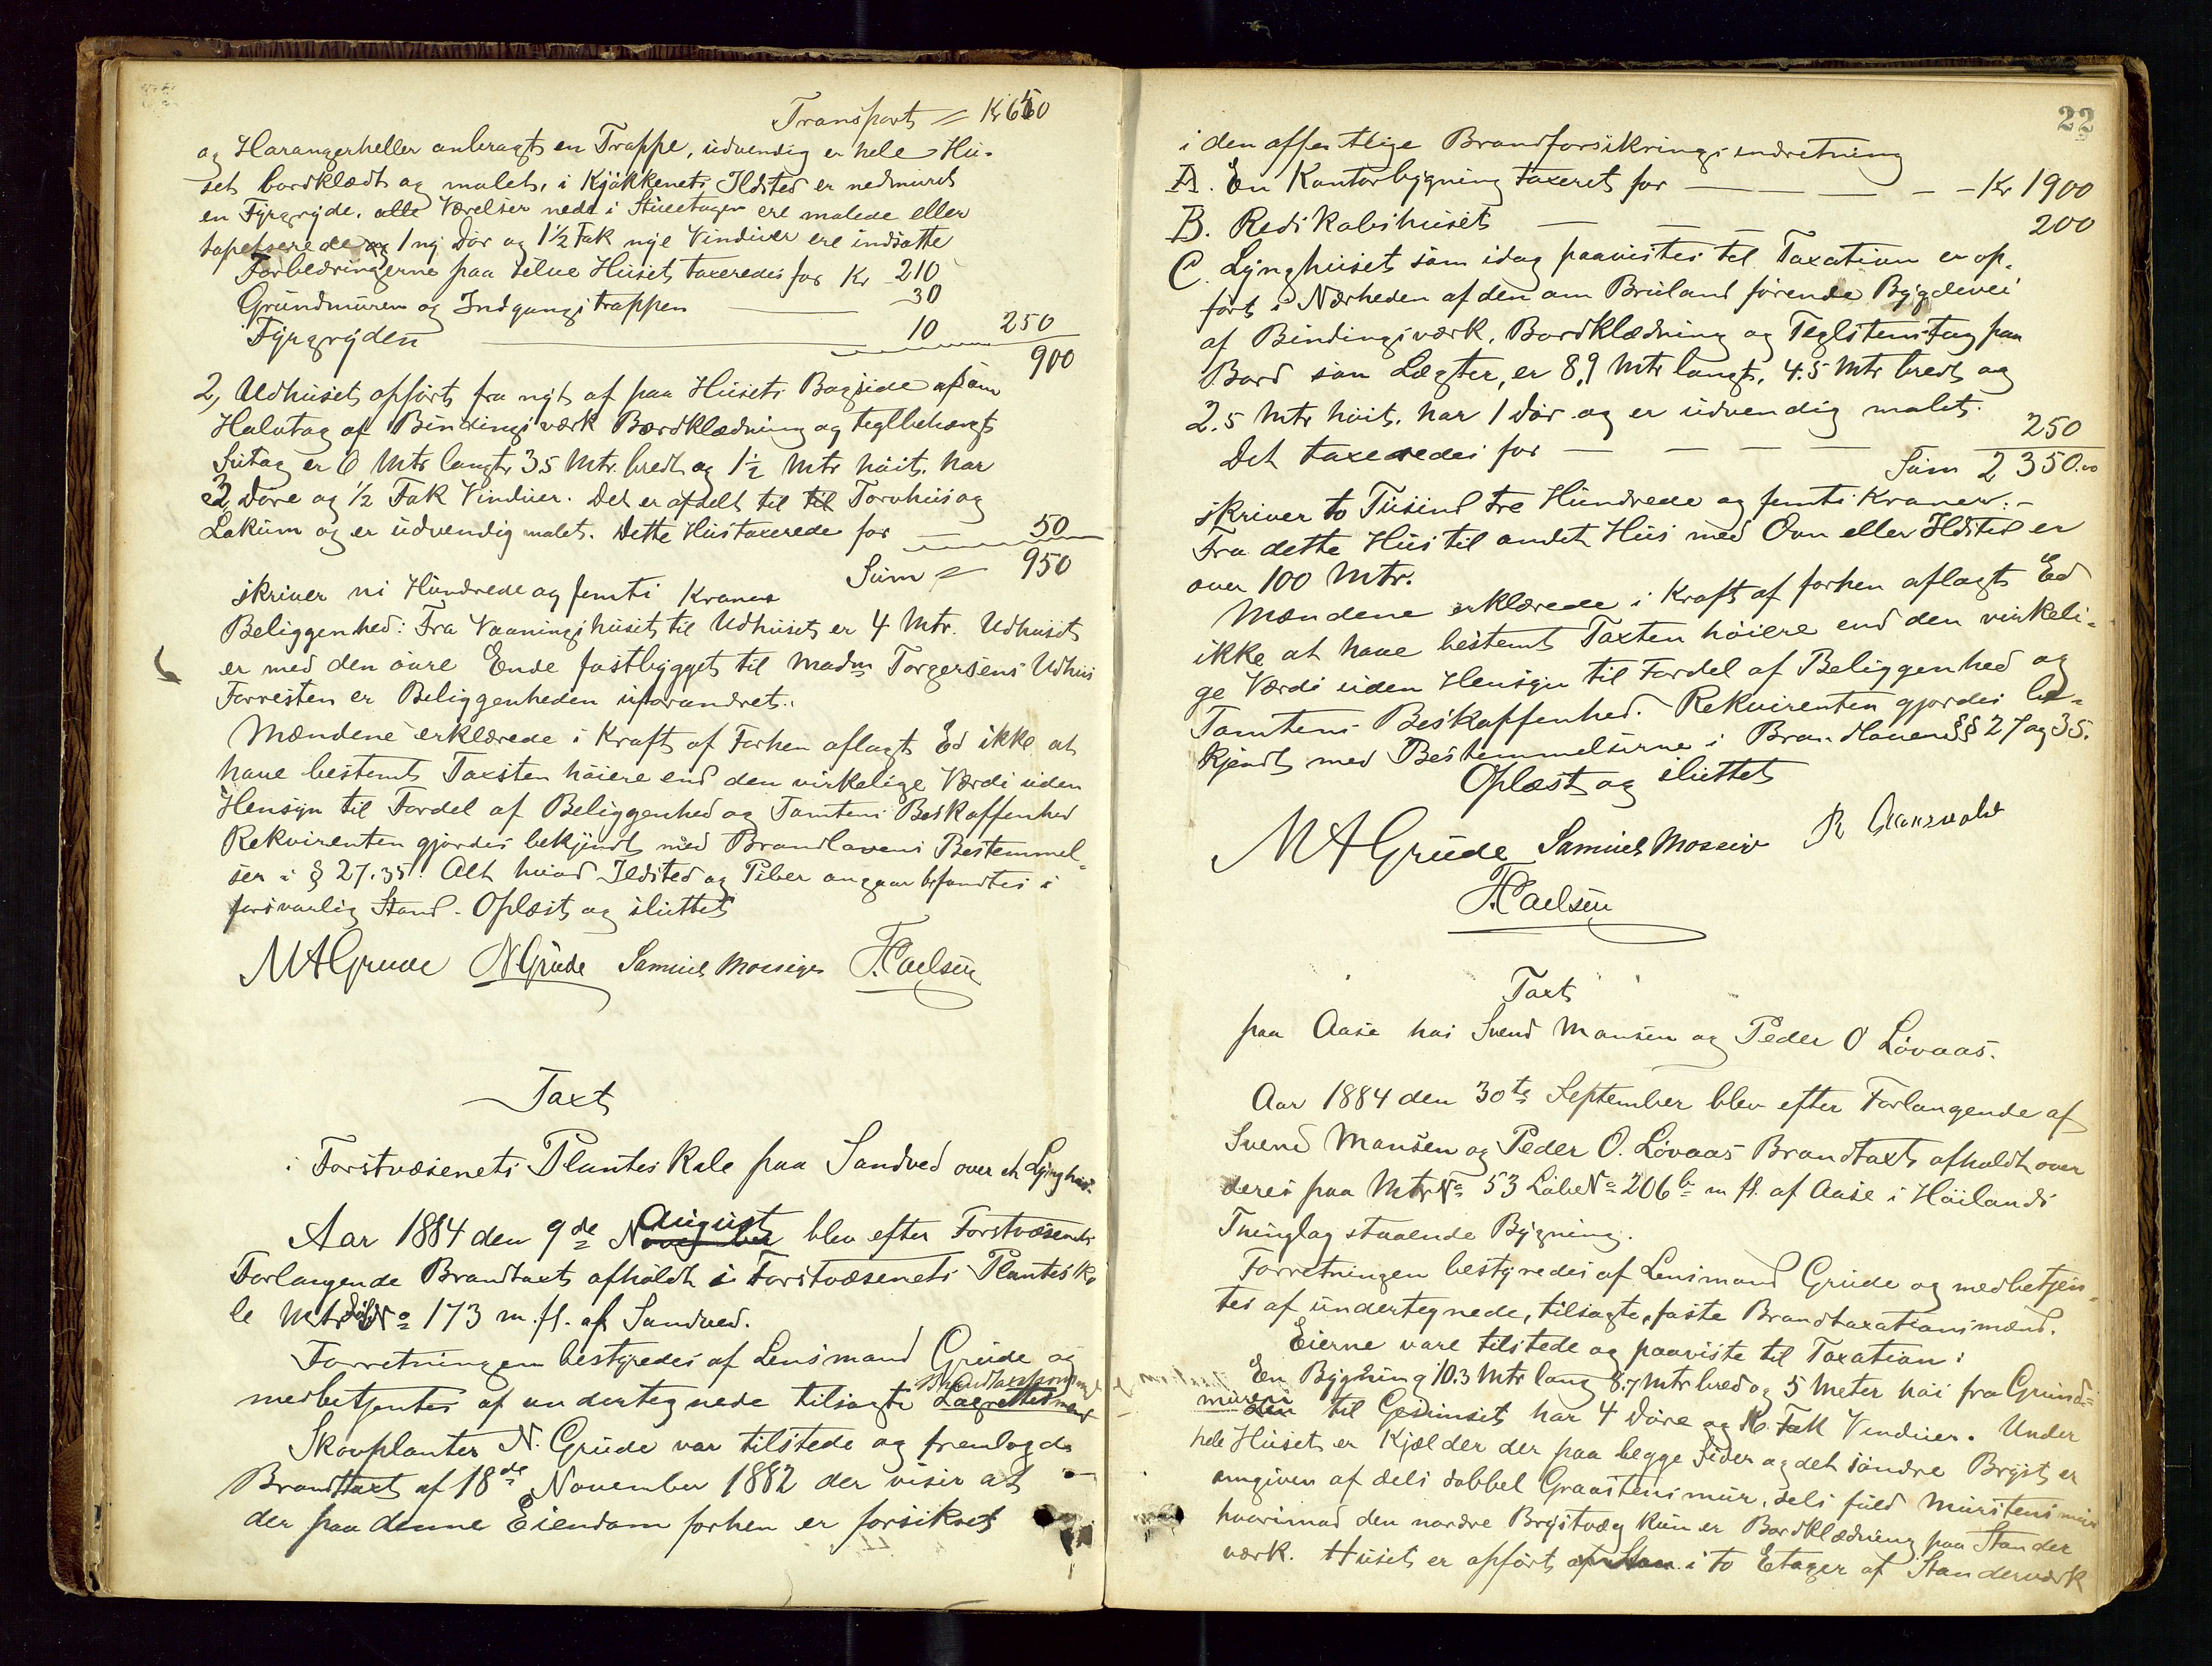 Transport = Kr 650
og Harangerheller anbragt en Trappe, udvendig er hele Hu-
set bordklædt og malet, i Kjøkkenets Ildsted er nedmuret
en Fyrgryde. alle Værelser nede i Stueetagen ere malede eller
tapetserede og 1 ny Dør og 1½ Fak nye Vinduer ere indsatte
Forbedringerne paa selve Huset taxeredes for Kr 210
Grundmuren og Indgangstrappen 30
Fyrgryden 10 250
900
2, Udhuset opført fra nyt af paa Husets Bagside som
Halvtag af Bindingsværk Bordklædning og teglbehængt
Sutag er 6 Mtr langt, 3.5 Mtr. bredt og 1½ Mtr høit, har
2 Døre og ½ Fak Vinduer. Det er afdelt til Torvhus og
Lokum og er udvendig malet. Dette Hus taxerede for 50
Sum = 950
skriver ni Hundrede og femti Kroner
Beliggenhed: Fra Vaaningshuset til Udhuset er 4 Mtr. Udhuset
er med den øvre Ende fastbygget til Madm Torgersens Udhus
Forresten er Beliggenheden uforandret.
Mændene erklærede i Kraft af Forhen aflagt Ed ikke at
have bestemt Taxten høiere end den virkelige Værdi uden
Hensyn til Fordel af Beliggenhed og Tomtens Beskaffenhed
Rekvirenten gjordes bekjendt med Brandlovens Bestemmel-
ser i § 27.35. Alt hvad Ildsted og Piber angaar befandtes i
forsvarlig Stand. Oplæst og sluttet
M A Grude N Grude Samuel Mossige F. Caelsen
Taxt
i Forstvæsenets Planteskole paa Sandved over et Lynghus.
August
Aar 1884 den 9de November blev efter Forstvæsenets
Forlangende Brandtaxt afholdt i Forstvæsenets Plantesko
le Mtr Løb No 173 m. fl. af Sandved.
Forretningen bestyredes af Lensmand Grude og
Brandtaxtmænd
medbetjentes af undertegnede tilsagte Lagrettesmænd
Skovplanter N. Grude var tilstede og fremlagde
Brandtaxt af 18de November 1882 der viser at
der paa denne Eiendom forhen er forsikret
22
i den offentlige Brandforsikringsindretning
A. En Kontorbygning taxeret for Kr 1900
B. Redskabshuset 200
C. Lynghuset som idag paavistes til Taxation er op-
ført i Nærheden af den om Bruland førende Bygdevei
af Bindingsværk, Bordklædning og Teglstenstag paa
Bord som Lægter, er 8,9 Mtr langt, 4.5 Mtr bredt og
2.5 Mtr høit, har 1 Dør og er udvendig malet.
Det taxeredes for 250
Sum 2350.00
skriver to Tusind tre Hundrede og femti Kroner.-
Fra dette Hus til andet Hus med Ovn eller Ildsted er
over 100 Mtr.
Mændene erklærede i Kraft af forhen aflagt Ed
ikke at have bestemt Taxten høiere end den virkeli-
ge Værdi uden Hensyn til Fordel af Beliggenhed og
Tomtens Beskaffenhed. Rekvirenten gjordes be-
kjendt med Bestemmelserne i Brandloven §§ 27 og 35.
Oplæst og sluttet
M A Grude Samuel Mossige
F. Caelsen
Taxt
paa Aase hos Svend Monsen og Peder O Løvaas.
Aar 1884 den 30te September blev efter Forlangende af
Svend Monsen og Peder O. Løvaas Brandtaxt afholdt over
deres paa Mtr No 53 Løbe No 206b m fl. af Aase i Høilands
Thinglag staaende Bygning.
Forretningen bestyredes af Lensmand Grude og medbetjen-
tes af undertegnede, tilsagte, faste Brandtaxationsmænd.
Eierne vare tilstede og paaviste til Taxation:
En Bygning 10.3 Mtr lang 8.7 Mtr bred og 5 Meter høi fra Grund-
muren til Gesimset har 4 Døre og Fak Vinduer. Under
hele Huset er Kjælder der paa begge Sider og det søndre Bryst er
omgiven af dels dobbel Graastensmur, dels fuld Murstensmur
hvorimod den nordre Brystvæg kun er Bordklædning paa Stander
værk. Huset er opført i to Etager af Standerværk